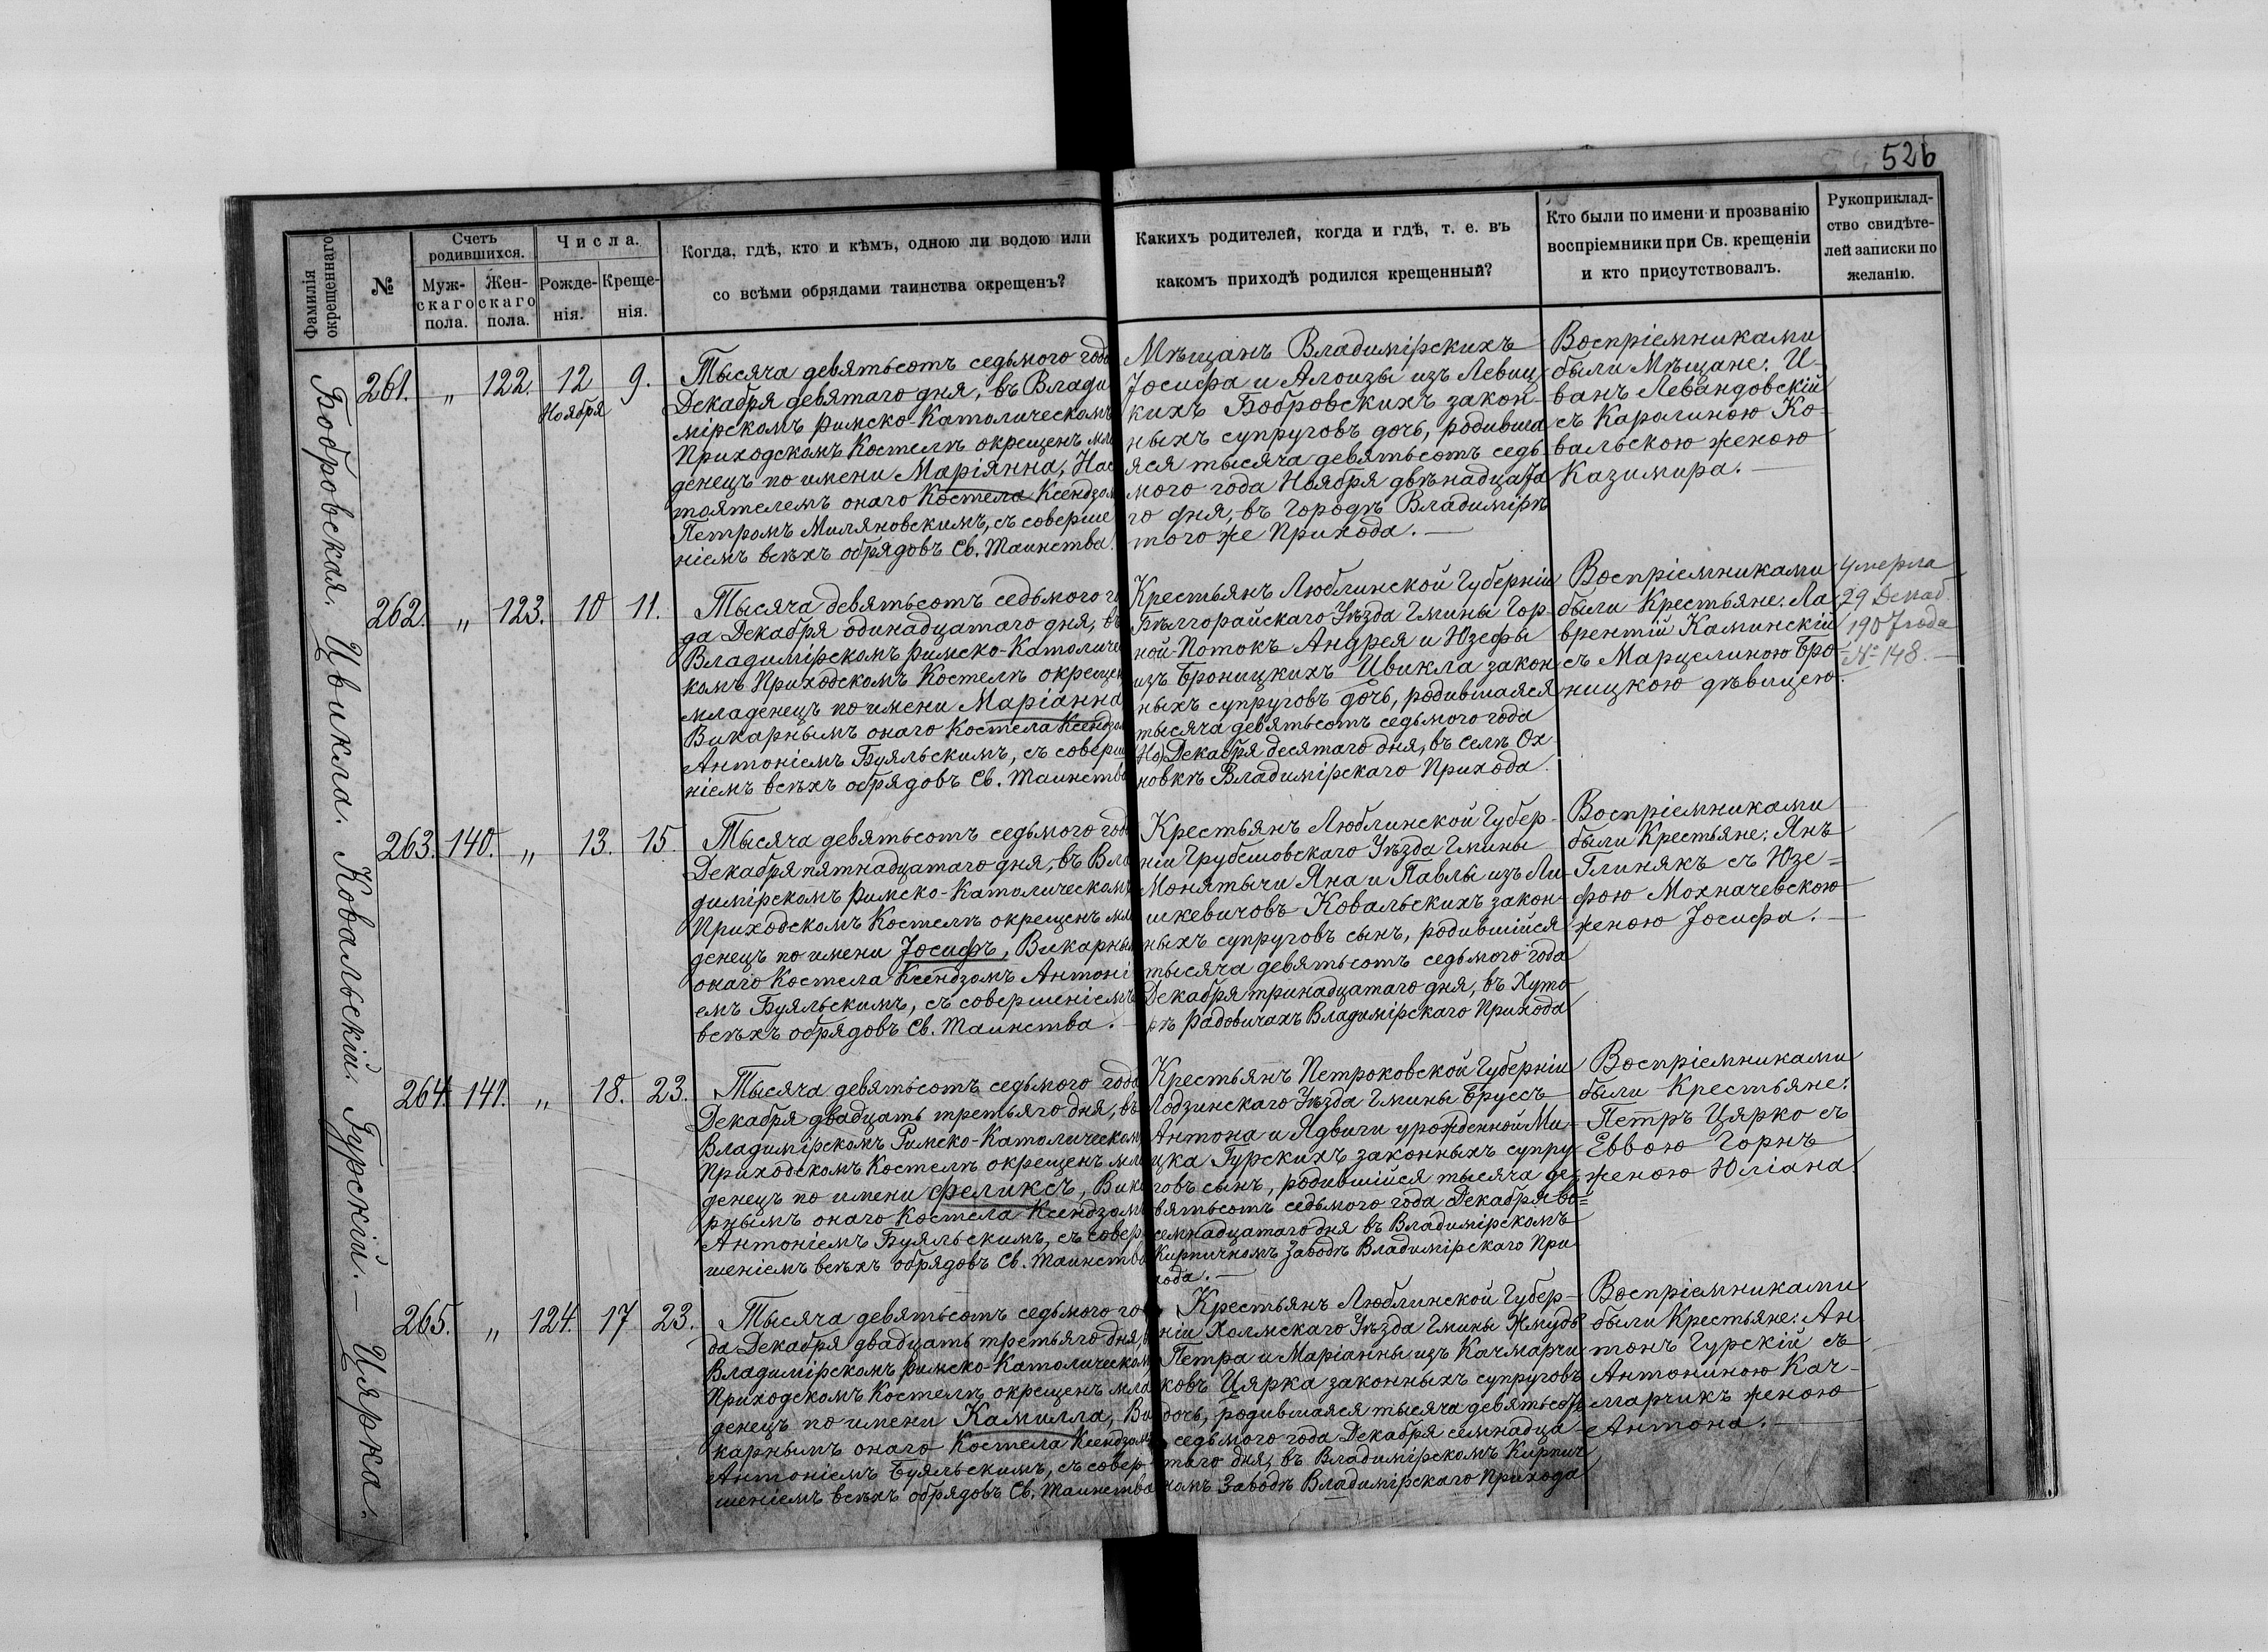 526
Фамилія
окрещеннаго
№
Счетъ
родившихся.
Муж-
скаго
пола.
Жен-
скаго
пола.
Числа.
Рожде-
нія.
Креще-
нія.
Когда, гдѣ, кто и кѣмъ, одною ли водою или
со всѣми обрядами таинства окрещенъ?
Какихъ родителей, когда и гдѣ, т. е. въ
какомъ приходѣ родился крещенный?
Кто были по имени и прозванію
воспріемники при Св. крещеніи
и кто присутствовалъ.
Рукоприклад-
ство свидѣте-
лей записки по
желанію.
Бобровская.
261. „ 122. 12 9.
Ноября
Тысяча девятьсотъ седьмого года
Декабря девятаго дня, въ Влади
мірскомъ Римско-Католическомъ
Приходскомъ Костелѣ окрещенъ мла
денецъ по имени Маріянна, Нас
тоятелемъ онаго Костела Ксендзом
Петромъ Миляновскимъ, съ соверше
ніемъ всѣхъ обрядовъ Св. Таинства.
Мѣщанъ Владимірскихъ
Іосифа и Алоизы изъ Левиц
кихъ Бобровскихъ закон-
ныхъ супруговъ дочь, родивша
яся тысяча девятьсотъ седь
мого года Ноября двѣнадцата
го дня, въ Городѣ Владимірѣ
того же Прихода. —
Воспріемниками
были Мѣщане: И-
ванъ Левандовскій
съ Каролиною Ко-
вальскою женою
Казимира. —
Цвикла.
262. „ 123. 10 11.
Тысяча девятьсотъ седьмого го
да Декабря одинадцатаго дня, въ
Владимірскомъ Римско-Католичес
комъ Приходскомъ Костелѣ окрещен
младенецъ по имени Маріанна
Викарнымъ онаго Костела Ксендзом
Антоніемъ Буяльскимъ, съ соверше
ніемъ всѣхъ обрядовъ Св. Таинства
Крестьянъ Люблинской Губерніи
Бѣлгорайскаго Уѣзда Гмины Гор-
ной-Потокъ Андрея и Юзефы
изъ Броницкихъ Цвикла закон
ныхъ супруговъ дочь, родившаяся
тысяча девятьсотъ седьмого года
(Но) Декабря десятаго дня, въ Селѣ Ох-
новкѣ Владимірскаго Прихода.
Воспріемниками
были Крестьяне: Ла
врентій Каминскій
съ Марцелиною Бро
ницкою дѣвицею.
Умерла
29 Декаб.
1907 года
№ 148. —
Ковальскій.
263. 140. „ 13. 15.
Тысяча девятьсотъ седьмого года
Декабря пятнадцатаго дня, въ Вла
димірскомъ Римско-Католическомъ
Приходскомъ Костелѣ окрещенъ мла
денецъ по имени Іосифъ, Викарным
онаго Костела Ксендзомъ Антоні
емъ Буяльскимъ, съ совершеніемъ
всѣхъ обрядовъ Св. Таинства. —
Крестьянъ Люблинской Губер-
ніи Грубешовскаго Уѣзда Гмины
Монятычи Яна и Павлы изъ Ли-
шкевичовъ Ковальскихъ закон-
ныхъ супруговъ сынъ, родившійся
тысяча девятьсотъ седьмого года
Декабря тринадцатаго дня, въ Хуто
рѣ Радовичахъ Владимірскаго Прихода
Воспріемниками
были Крестьяне: Янъ
Глинякъ съ Юзе=
фою Мохначевскою
женою Іосифа. —
Гурскій. —
264. 141. „ 18. 23.
Тысяча девятьсотъ седьмого года
Декабря двадцать третьяго дня, въ
Владимірскомъ Римско-Католическом
Приходскомъ Костелѣ окрещенъ мла
денецъ по имени Феликсъ, Вика
рнымъ онаго Костела Ксендзомъ
Антоніемъ Буяльскимъ, съ совер-
шеніемъ всѣхъ обрядовъ Св. Таинства
Крестьянъ Петроковской Губерніи
Лодзинскаго Уѣзда Гмины Бруссъ
Антона и Ядвиги урожденной Ми-
цка Гурскихъ законныхъ супру
говъ сынъ, родившійся тысяча де-
вятьсотъ седьмого года Декабря во=
семнадцатаго дня въ Владимірскомъ
Кирпичномъ Заводѣ Владимірскаго При
хода. —
Воспріемниками
были Крестьяне:
Петръ Цярко съ
Еввою Горнъ
женою Юліана.
Цярка.
265. „ 124. 17 23.
Тысяча девятьсотъ седьмого го-
да Декабря двадцать третьяго дня, въ
Владимірскомъ Римско-Католическом
Приходскомъ Костелѣ окрещенъ мла
денецъ по имени Камилла, Ви
карнымъ онаго Костела Ксендзомъ
Антоніемъ Буяльскимъ, съ совер-
шеніемъ всѣхъ обрядовъ Св. Таинства
Крестьянъ Люблинской Губер-
ніи Холмскаго Уѣзда Гмины Жмудь
Петра и Маріанны изъ Качмарчи
ковъ Цярка законныхъ супруговъ
дочь, родившаяся тысяча девятьсотъ
седьмого года Декабря семнадца-
таго дня, въ Владимірскомъ Кирпич
номъ Заводѣ Владимірскаго Прихода
Воспріемниками
были Крестьяне: Ан
тонъ Гурскій съ
Антониною Кач-
марчикъ женою
Антона. —